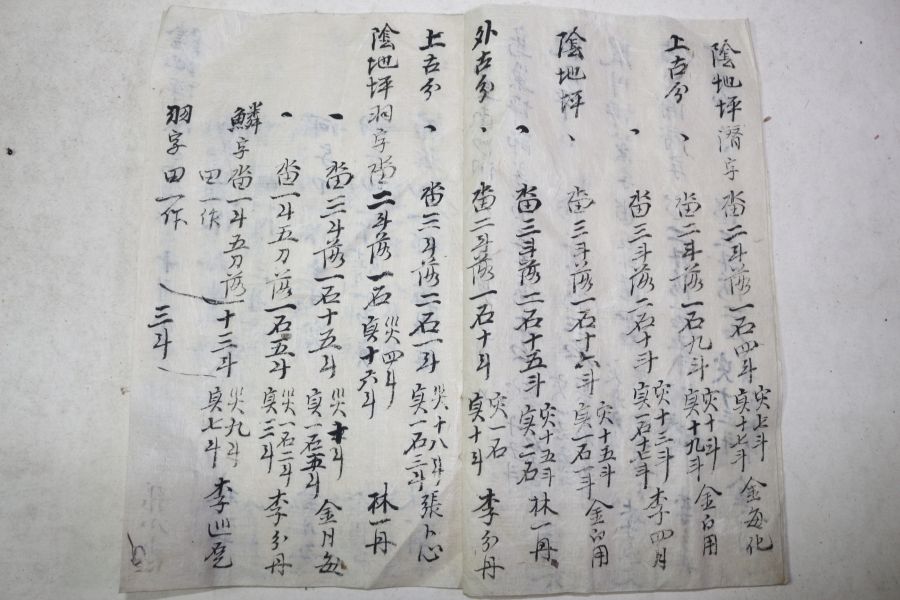 陰地坪潛字 畓二斗落一石四斗 灾七斗 实十七斗 金每化
上古分 、 畓二斗落一石九斗 灾十斗 实十九斗 金白用
、 畓三斗落二石十斗 灾十三斗 实一石十七斗 李四月
陰地坪 、 畓三斗落一石十六斗 灾十五斗 实一石一斗 金白用
、 畓三斗落二石十五斗 灾十五斗 实二石 林一丹
外古分 、 畓二斗落一石十斗 灾一石 实十斗 李分丹
上古分 、 畓三斗落二石一斗 災十八斗 实一石三斗 張卜心
陰地坪羽字畓二斗落一石 災四斗 实十六斗 林一丹
、 畓三斗落一石十五斗 災十斗 实一石五斗 金月每
、 畓一斗五刀落一石五斗 災一石二斗 实三斗 李分丹
鱗字畓一斗五刀落 田一作 十三斗 災九斗 实七斗 李巡
羽字田一作 三斗